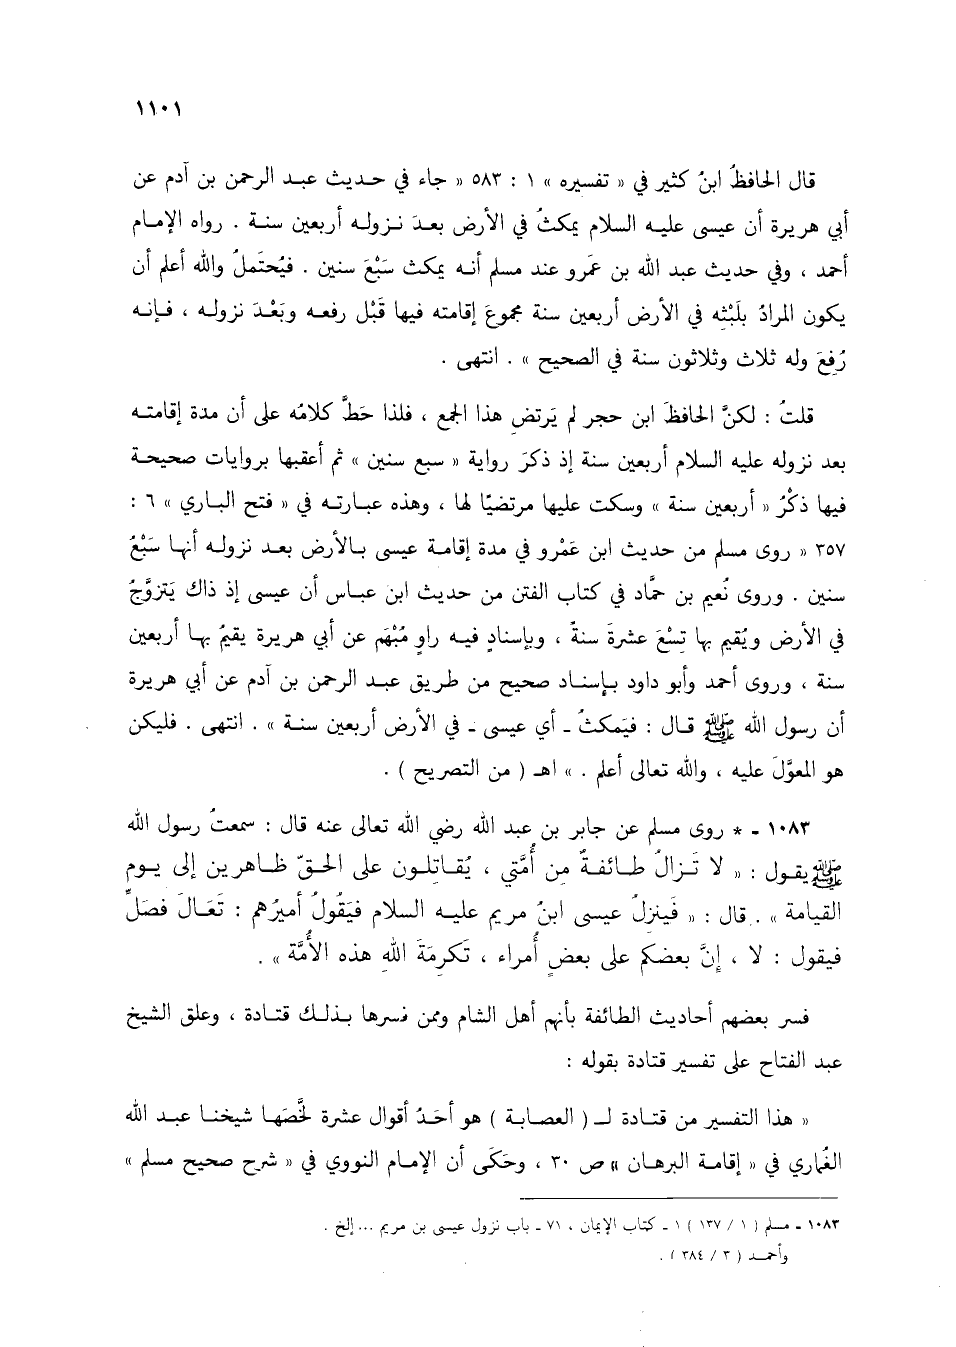 ١١٠١
قال الحافظُ ابنُ كثير في « تفسيره » ١ : ٥٨٣ « جاء في حديث عبد الرحمن بن آدم عن
أبي هريرة أن عيسى عليه السلام يمكثُ في الأرض بعدَ نزوله أربعين سنة . رواه الإمام
أحمد ، وفي حديث عبد الله بن عَمرو عند مسلم أنه يمكث سَبْعَ سنين . فيُحتَملُ والله أعلم أن
يكون المرادُ بلَبْثِه في الأرض أربعين سنة مجموعَ إقامته فيها قَبْل رفعه وبَعْدَ نزوله ، فإنه
رُفِعَ وله ثلاث وثلاثون سنة في الصحيح » . انتهى .
قلتُ : لكنَّ الحافظَ ابن حجر لم يَرتضِ هذا الجمع ، فلذا حَطَّ كلامُه على أن مدة إقامته
بعد نزوله عليه السلام أربعين سنة إذ ذكرَ رواية « سبع سنين » ثم أعقبها بروايات صحيحة
فيها ذكْرُ « أربعين سنة » وسكت عليها مرتضيًا لها ، وهذه عبارته في « فتح الباري » ٦ :
٣٥٧ « روى مسلم من حديث ابن عَمْرو في مدة إقامة عيسى بالأرض بعد نزوله أنها سَبْعُ
سنين . وروى نُعيم بن حمَّاد في كتاب الفتن من حديث ابن عباس أن عيسى إذ ذاك يَتزوَّجُ
في الأرض ويُقيم بها تِسْعَ عشرةَ سنةً ، وبإسنادٍ فيه راوٍ مُبْهَم عن أبي هريرة يقيمُ بها أربعين
سنة ، وروى أحمد وأبو داود بإسناد صحيح من طريق عبد الرحمن بن آدم عن أبي هريرة
أن رسول الله ﷺ قال : فيَمكثُ ـ أي عيسى ـ في الأرض أربعين سنة » . انتهى . فليكن
هو المعوَّلَ عليه ، والله تعالى أعلم . » اهـ ( من التصريح ) .
١٠٨٣ ـ * روى مسلم عن جابر بن عبد الله رضي الله تعالى عنه قال : سمعتُ رسول الله
ﷺ يقول : « لا تَزالُ طائفةٌ مِن أُمَّتي ، يُقاتلون على الحقّ ظاهرين إلى يوم
القيامة » . قال : « فَينزلُ عيسى ابنُ مريم عليه السلام فيَقُولُ أميرُهم : تَعَالَ فصَلِّ
فيقول : لا ، إنَّ بعضكم على بعضٍ أُمراء ، تَكرِمَةَ اللهِ هذه الأُمَّة » .
فسر بعضهم أحاديث الطائفة بأنهم أهل الشام وممن فسرها بذلك قتادة ، وعلق الشيخ
عبد الفتاح على تفسير قتادة بقوله :
« هذا التفسير من قتادة لـ ( العصابة ) هو أحَدُ أقوال عشرة لخَّصَها شيخنا عبد الله
الغُماري في « إقامة البرهان » ص ٣٠ ، وحَكَى أن الإمام النووي في « شرح صحيح مسلم »
١٠٨٣ ـ مسلم ( ١ / ١٣٧ ) ١ ـ كتاب الإيمان ، ٧١ ـ باب نزول عيسى بن مريم ... إلخ .
وأحمد ( ٣ / ٣٨٤ ) .